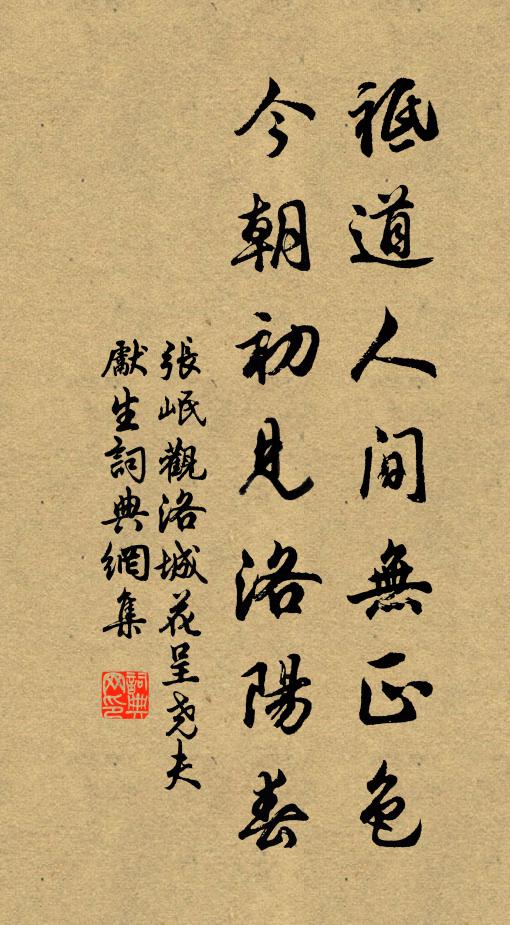 祗道人間無正色
今朝初見洛陽春
張岷觀洛城花呈尧夫
獻生詞典網集
詞典网印